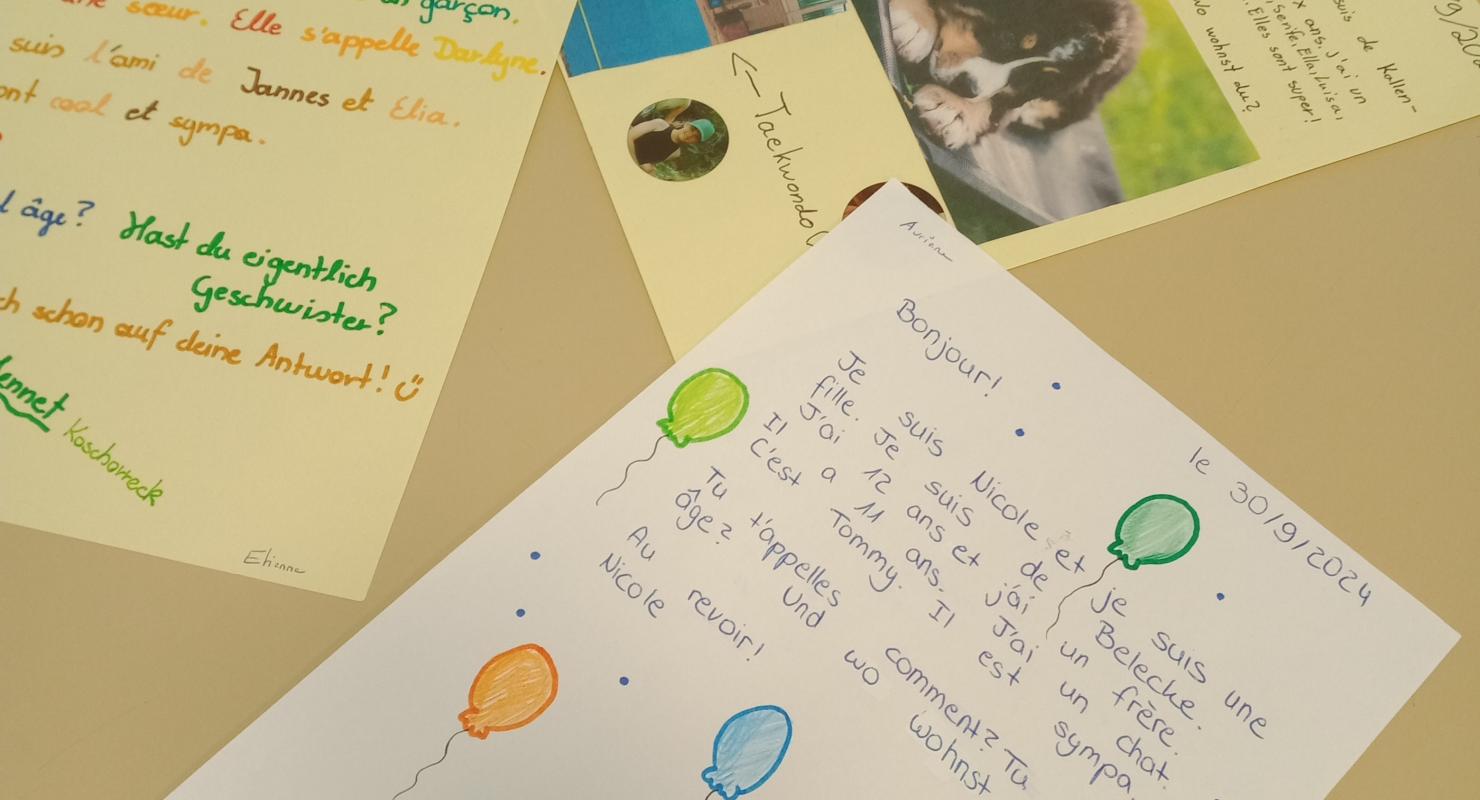 garçon.
sœur. Elle s'appelle Darlyne.
suis l'ami de Jannes et Elia.
ont cool et sympa.
âge? Hast du eigentlich
Geschwister?
ch schon auf deine Antwort!
ennet Koschorreck
Etienne
Taekwondo
suis de Kallen-
x ans. J'ai un
Ella, Luisa,
Elles sont super!
Wo wohnst du?
le 30/9/2024
Bonjour!
Je suis Nicole et je suis une
fille. Je suis de Belecke.
J'ai 12 ans et j'ai un frère.
Il a 11 ans. J'ai un chat.
C'est Tommy. Il est sympa
Tu t'appelles comment? Tu
âge? Und wo wohnst
Au revoir!
Nicole